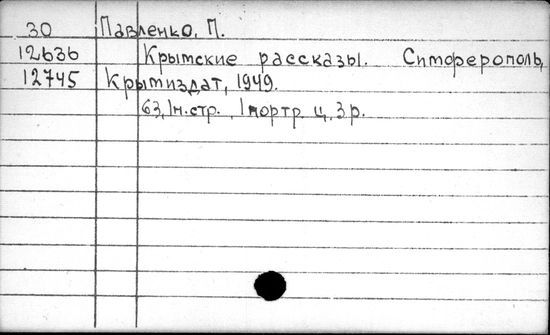 30 Павленко, П.
12636 Крымские рассказы. Симферополь,
12745 Крымиздат, 1949.
63, 1н.стр., 1 портр. ц. 3 р.